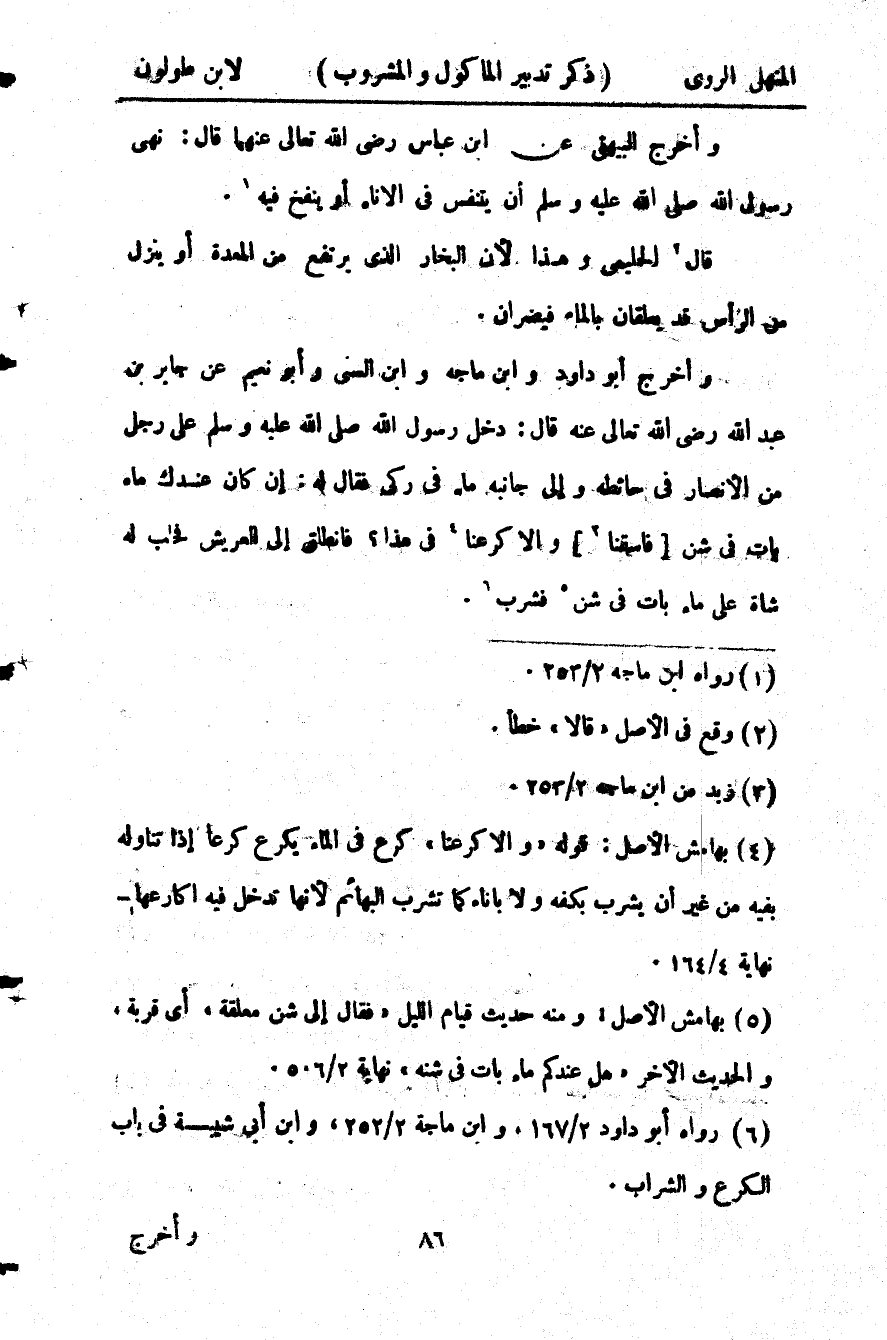 المنهل الروى ( ذكر تدبير الماكول و المشروب ) لابن طولون
و أخرج البيهقى عن ابن عباس رضى الله تعالى عنهما قال : نهى
رسول الله صلى الله عليه و سلم أن يتنفس فى الاناء أو ينفخ فيه ١ .
قال ٢ الحليمى و هذا لأن البخار الذى يرتفع من المعدة أو ينزل
من الرأس قد يعلقان بالماء فيضران .
و أخرج أبو داود و ابن ماجه و ابن السنى و أبو نعيم عن جابر بن
عبد الله رضى الله تعالى عنه قال : دخل رسول الله صلى الله عليه و سلم على رجل
من الأنصار فى حائطه و إلى جانبه ماء فى ركى فقال له : إن كان عندك ماء
بات فى شن [ فاسقنا ٣ ] و الا كرعنا ٤ فى هذا ؟ فانطلق إلى العريش فحلب له
شاة على ماء بات فى شن ٥ فشرب ٦ .
(١) رواه ابن ماجه ٢/٢٥٣ .
(٢) وقع فى الأصل « قالا » خطأ .
(٣) زيد من ابن ماجه ٢/٢٥٣ .
(٤) بهامش الأصل : قوله « و الا كرعنا » كرع فى الماء يكرع كرعا إذا تناوله
بفيه من غير أن يشرب بكفه و لا باناء كما تشرب البهائم لأنها تدخل فيه اكارعها -
نهاية ٤/١٦٤ .
(٥) بهامش الأصل : و منه حديث قيام الليل « فقال إلى شن معلقة » أى قربة ،
و الحديث الآخر « هل عندكم ماء بات فى شنه » نهاية ٢/٥٠٦ .
(٦) رواه أبو داود ٢/١٦٧ ، و ابن ماجة ٢/٢٥٢ ، و ابن أبي شيبة فى باب
الكرع و الشراب .
٨٦ و أخرج